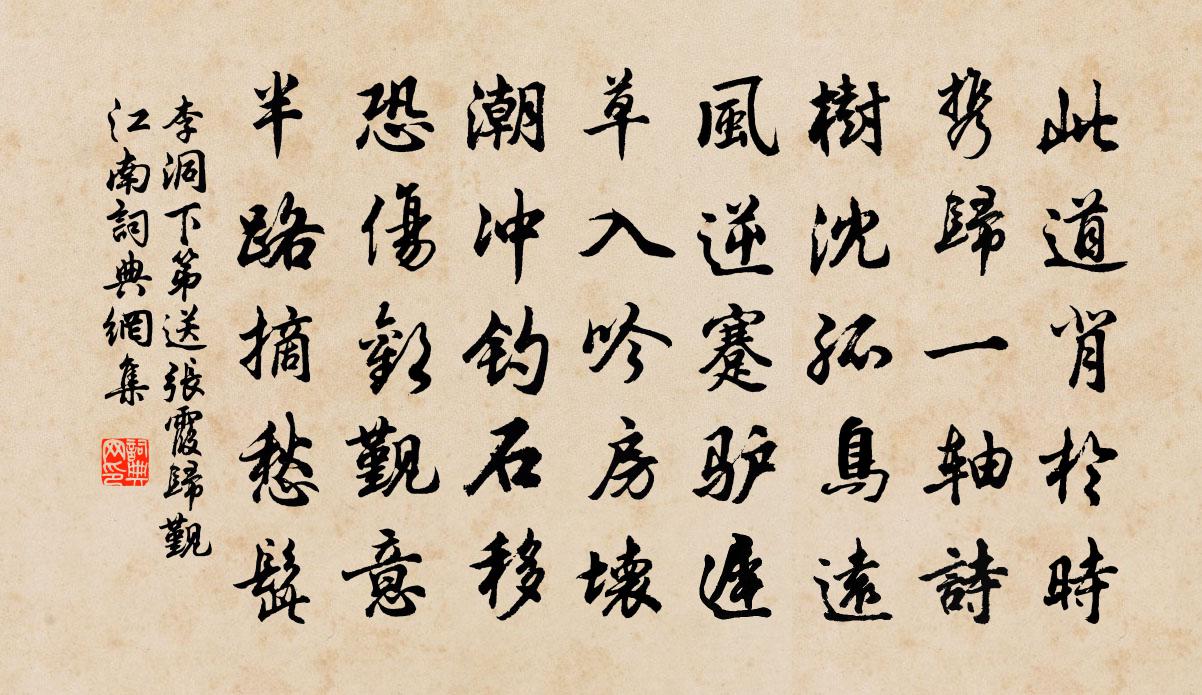 此道肖於時
携歸一轴詩
樹沈孤鳥遠
風逆蹇驴遲
草入吟房壊
潮冲钓石移
恐傷歡覲意
半路摘愁髭
李洞下第送張霞歸覲
江南詞典網集
詞典
网印